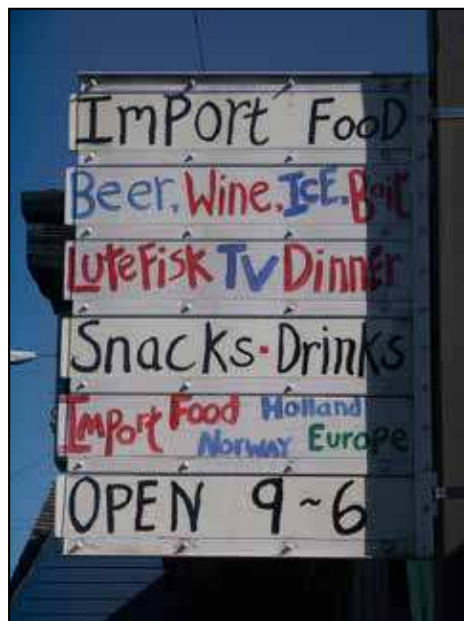 ImPort FooD
Beer. Wine. IcE. Bait
LuteFisk TV Dinner
Snacks · Drinks
Import Food Holland
Norway Europe
OPEN 9~6